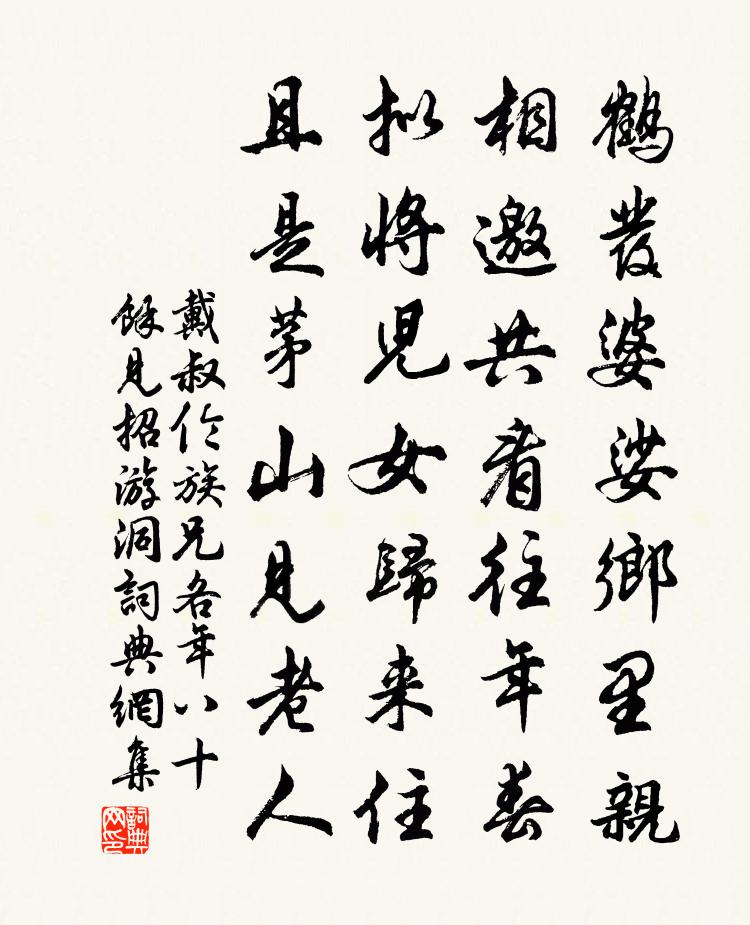 鶴發婆娑鄉里親
相邀共看往年春
拟將兒女歸来住
且是茅山見老人
戴叔伦族兄各年八十
餘見招游洞詞典網集
詞典网印